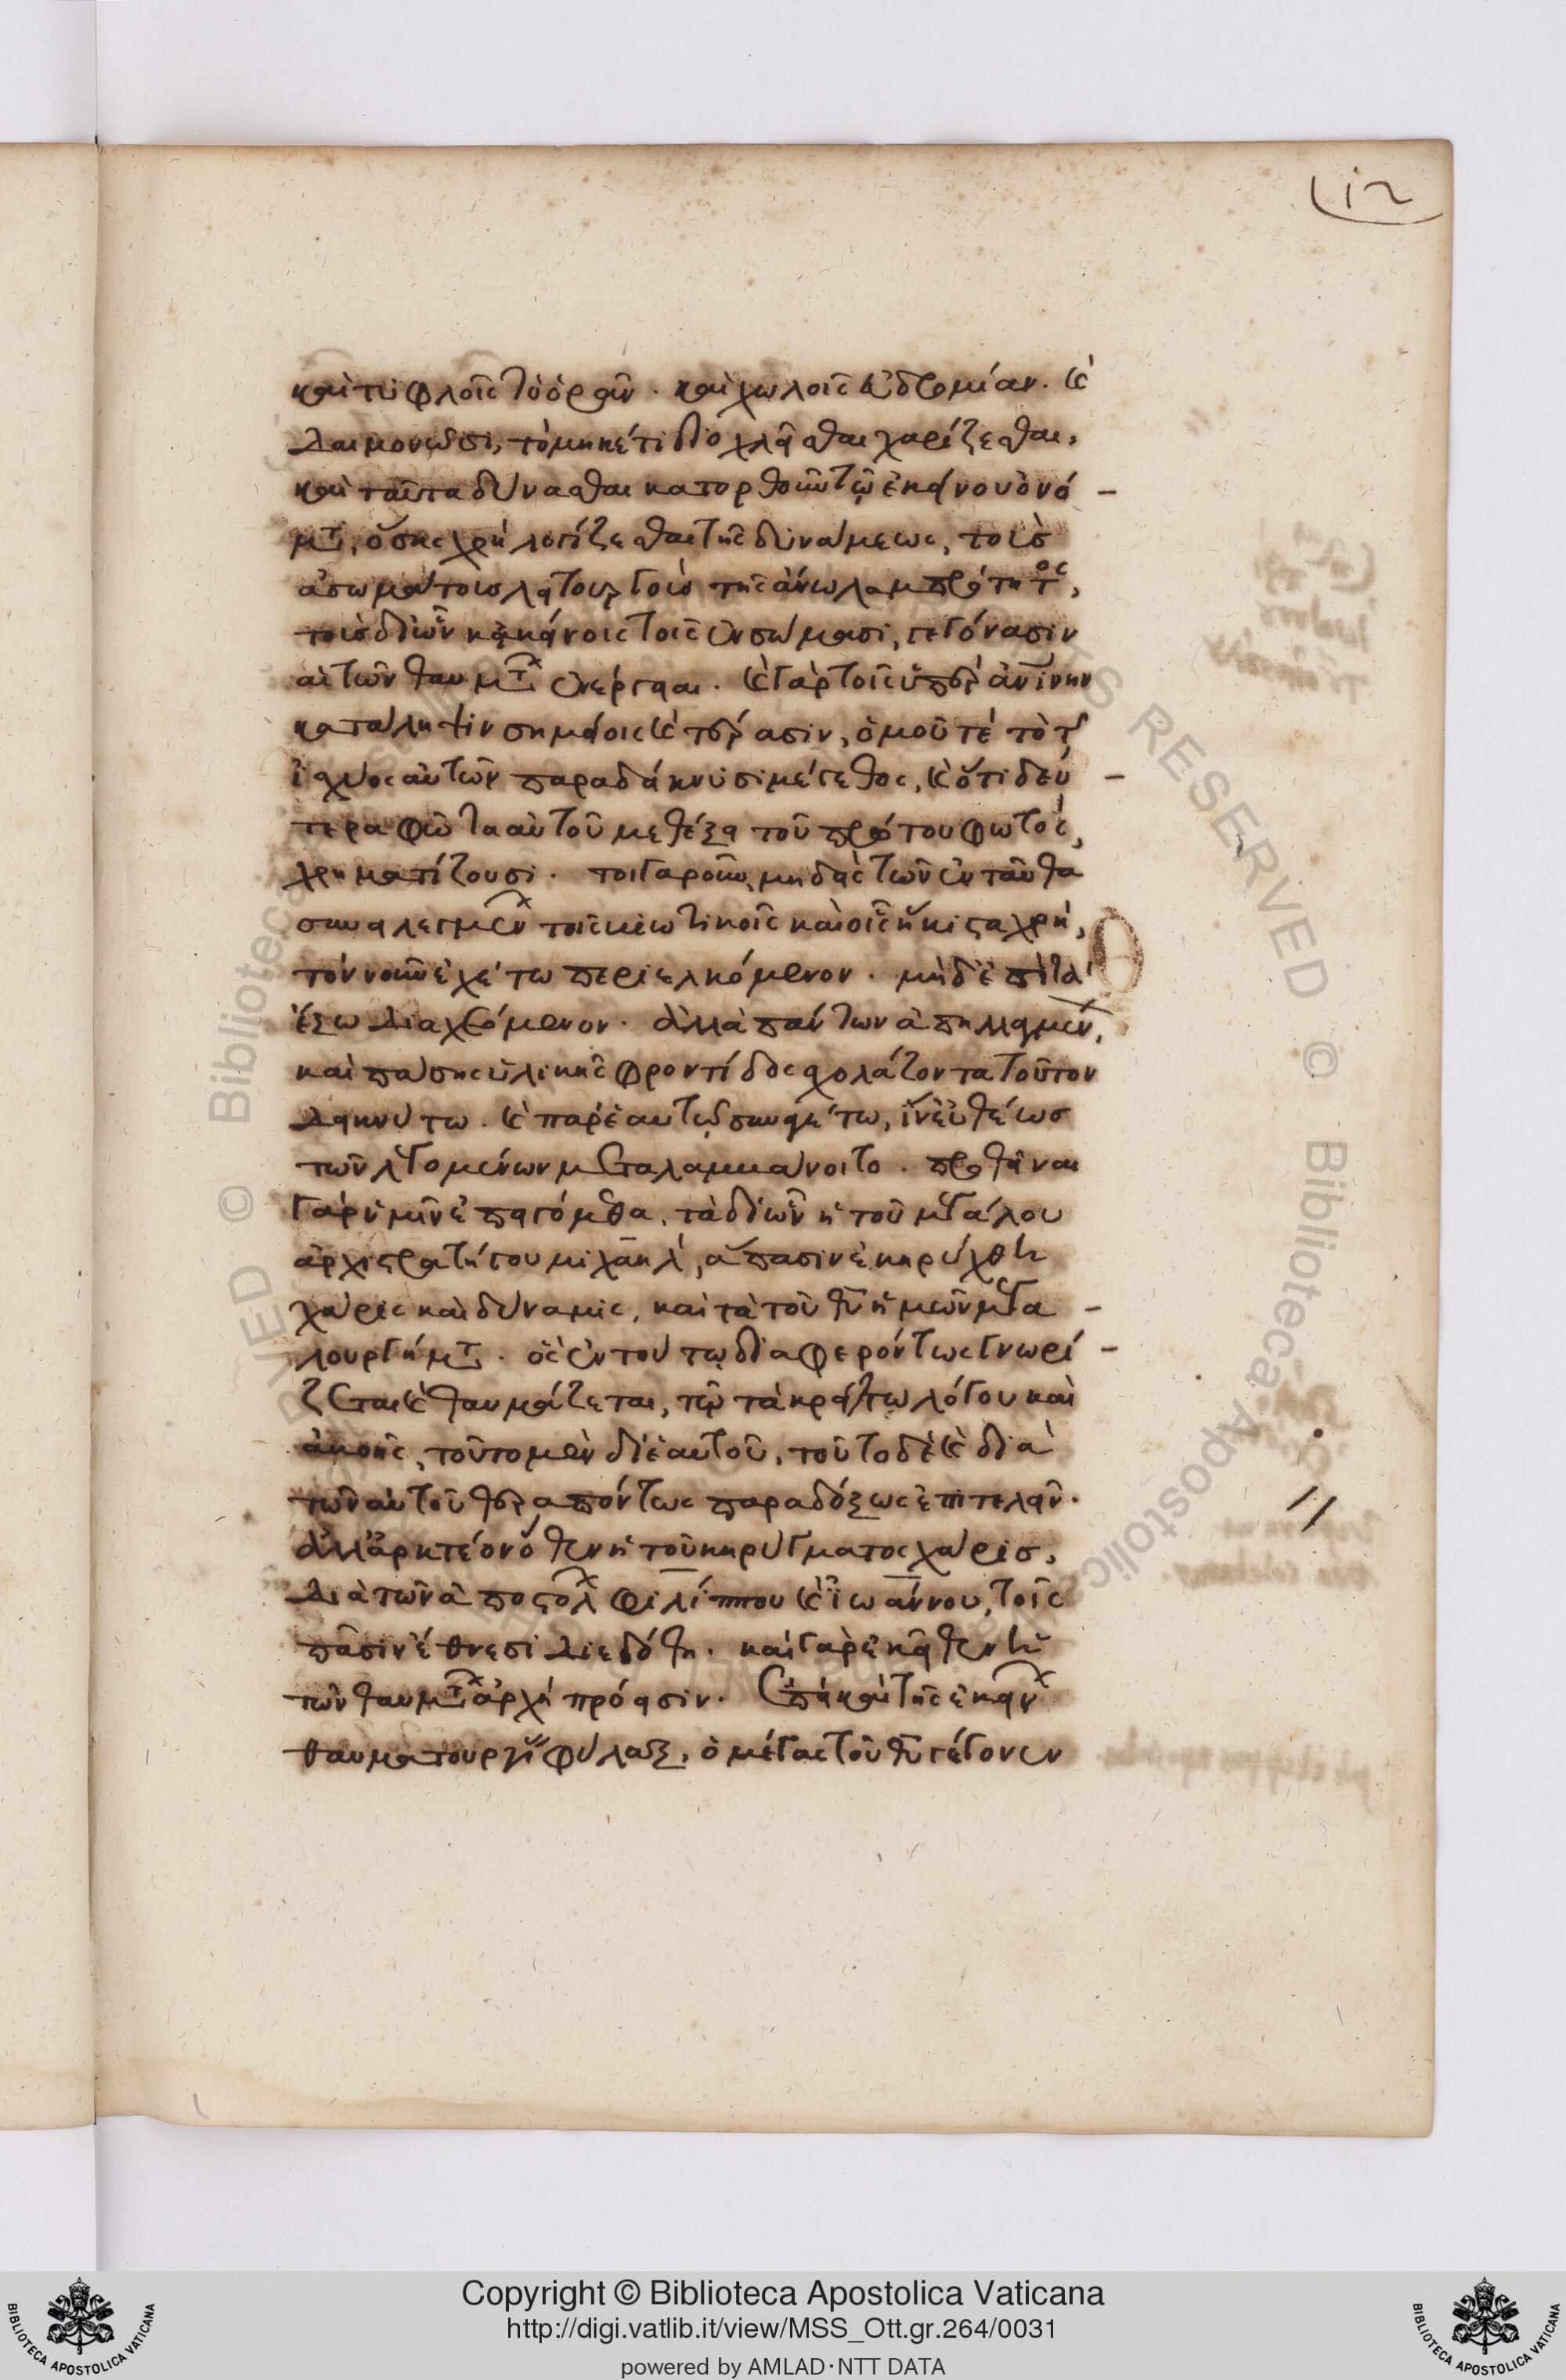 12
καὶ τυφλοῖς τὸ ὁρᾶν. καὶ χωλοῖς εὐδρομίαν. καὶ
δαιμονῶσι, τὸ μηκέτι διοχλεῖσθαι χαρίζεσθαι,
καὶ ταῦτα δύνασθαι κατορθοῦν τῷ ἐκείνου ὀνό-
ματι, ὅσης χρὴ λογίζεσθαι τῆς δυνάμεως, τοῖς
ἀσωμάτοις λειτουργοῖς τῆς ἄνω λαμπρότητος,
τοῖς δι' ὧν κἀκείνοις τοῖς ἐν σώμασι, γεγόνασιν
αἱ τῶν θαυμάτων ἐνέργειαι. καὶ γὰρ τοῖς ὑπὲρ ἀνθρωπίνην
κατάληψιν σημείοις καὶ τέρασιν, ὁμοῦ τέ τὸ τῆς
ἰσχύος αὐτῶν παραδείκνυσι μέγεθος, καὶ ὅτι δεύ-
τερα φῶτα αὐτοῦ μεθέξει τοῦ πρώτου φωτὸς,
χρηματίζουσι. τοιγαροῦν, μηδεὶς τῶν ἐνταῦθα
συνειλεγμένων τοῖς βιωτικοῖς καὶ οἷς ἥκιστα χρὴ,
τὸν νοῦν ἐχέτω περιελκόμενον. μηδ' ἐπὶ τὰ
ἔξω διαχεόμενον. ἀλλὰ πάντων ἀπηλλαγμένον,
καὶ πάσης ὑλικῆς φροντίδος σχολάζοντα τοῦτον
δεικνύτω. καὶ παρ' ἑαυτῷ συναγέτω, ἵν' εὐθέως
τῶν λεγομένων μεταλαμβάνοιτο. προθεῖναι
γὰρ ὑμῖν ἐπειγόμεθα, τὰ δι' ὧν ἡ τοῦ μεγάλου
ἀρχιστρατήγου μιχαὴλ, ἅπασιν ἐκηρύχθη
χάρις καὶ δύναμις, καὶ τὰ τοῦ θεοῦ ἡμῶν μεγα-
λουργήματα. ὃς ἐν τούτῳ διαφερόντως γνωρί-
ζεται καὶ θαυμάζεται, τῷ τὰ κρείττω λόγου καὶ
ἀκοῆς, τοῦτο μὲν δι' ἑαυτοῦ, τοῦτο δὲ καὶ διὰ
τῶν αὐτοῦ θεραπόντων παραδόξως ἐπιτελεῖν.
ἀλλ' ἀρκτέον ὅθεν ἡ τοῦ κηρύγματος χάρις,
διὰ τῶν ἀποστόλων φιλίππου καὶ ἰωάννου, τοῖς
πᾶσιν ἔθνεσι διεδόθη. καὶ γὰρ ἐκεῖθεν ἡ
τῶν θαυμάτων ἀρχὴ πρόεισιν. ἐπεὶ καὶ τῆς ἐκείνων
θαυματουργίας φύλαξ, ὁ μέγας τοῦ θεοῦ γέγονεν
Copyright © Biblioteca Apostolica Vaticana
http://digi.vatlib.it/view/MSS_Ott.gr.264/0031
powered by AMLAD·NTT DATA
BIBLIOTECA APOSTOLICA VATICANA
BIBLIOTECA APOSTOLICA VATICANA